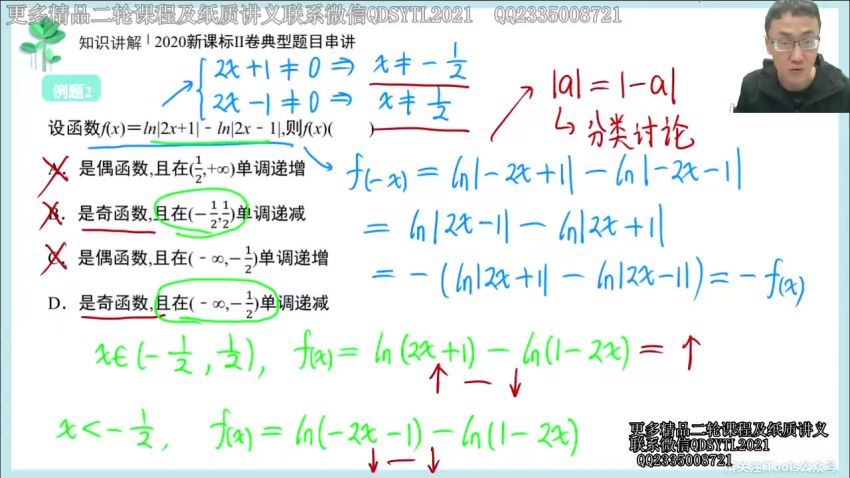 更多精品二轮课程及纸质讲义联系微信QDSYTL2021 QQ2335008721
知识讲解 | 2020新课标II卷典型题目串讲
例题2
2x+1≠0 ⇒ x≠-1/2
2x-1≠0 ⇒ x≠1/2
|a|=|-a|
↳分类讨论
设函数f(x)=ln|2x+1|﹣ln|2x﹣1|,则f(x)( )
A. 是偶函数,且在(1/2,+∞)单调递增
B. 是奇函数,且在(﹣1/2,1/2)单调递减
C. 是偶函数,且在(﹣∞,﹣1/2)单调递增
D. 是奇函数,且在(﹣∞,﹣1/2)单调递减
f(-x)=ln|-2x+1|-ln|-2x-1|
=ln|2x-1|-ln|2x+1|
=-(ln|2x+1|-ln|2x-1|)=-f(x)
x∈(-1/2,1/2), f(x)=ln(2x+1)-ln(1-2x)=↑
↑-↓
x<-1/2, f(x)=ln(-2x-1)-ln(1-2x)
↓-↓
更多精品二轮课程及纸质讲义
联系微信QDSYTL2021
QQ2335008721
请关注iTools公众号